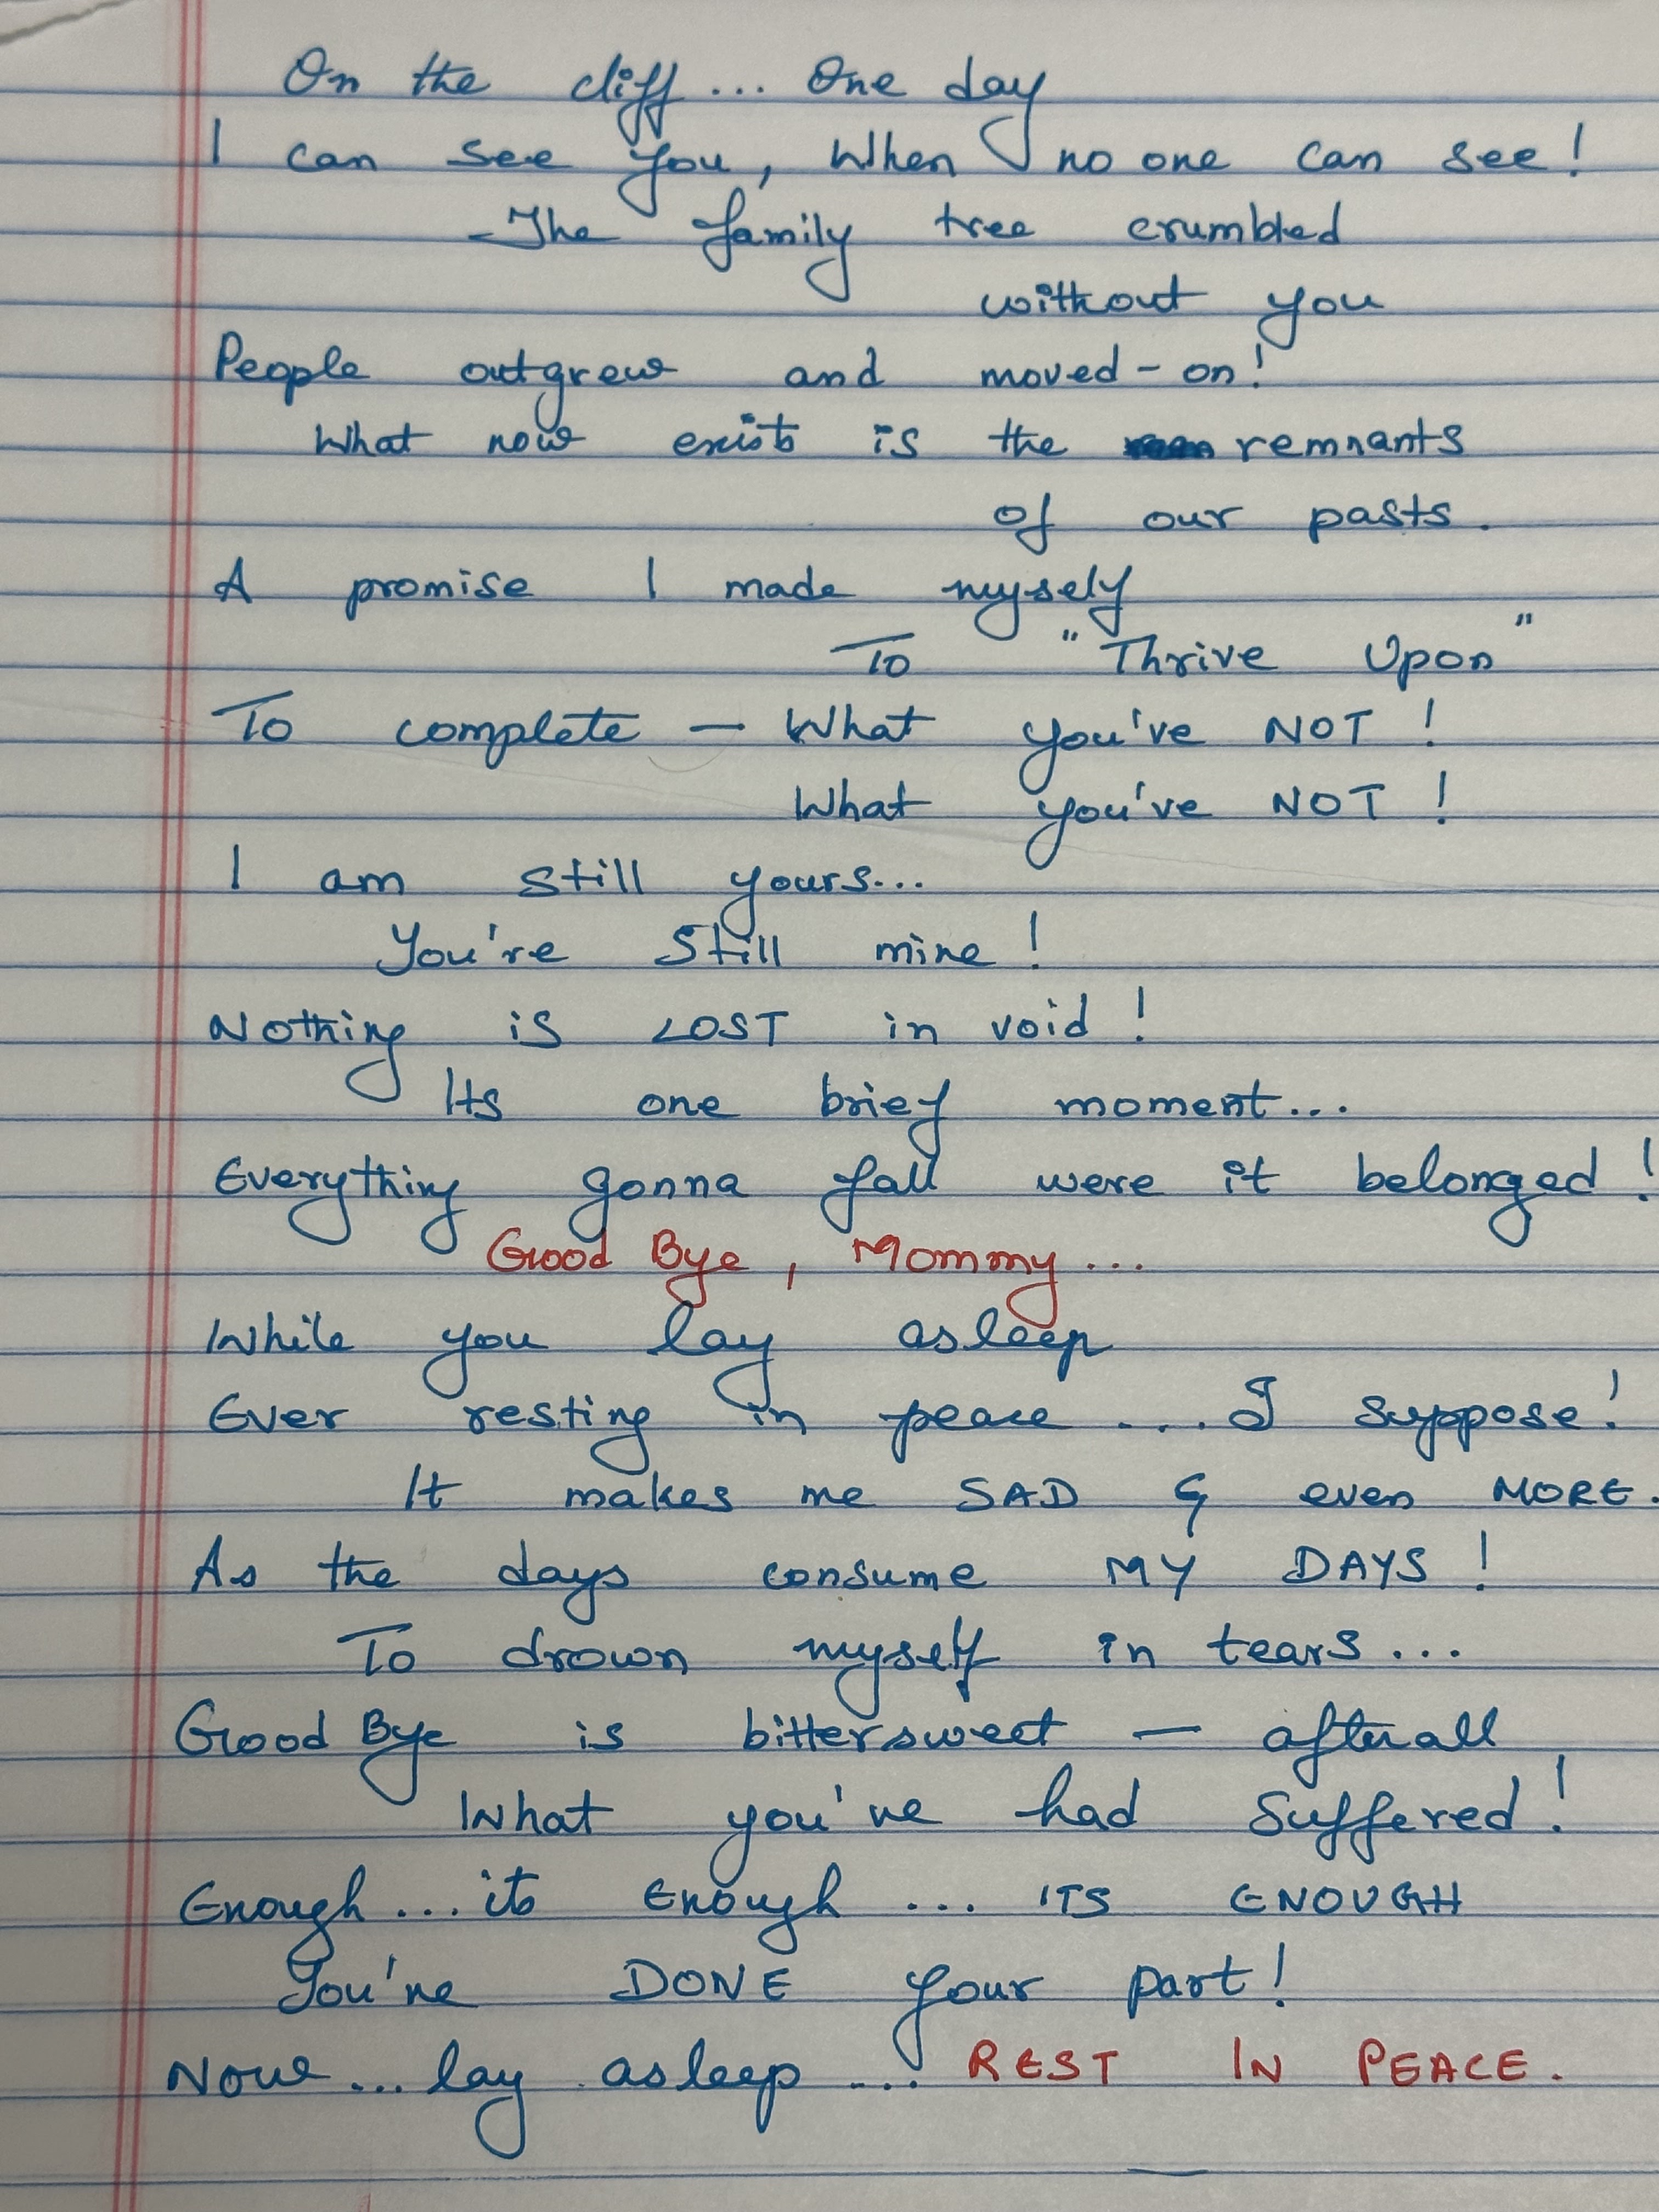 On the cliff... One day
I can see you, When no one can see!
The family tree crumbled
without you
People outgrew and moved-on!
What now exists is the remnants
of our pasts.
A promise I made myself
To "Thrive Upon"
To complete — What you've NOT!
What you've NOT!
I am still yours...
You're Still mine!
Nothing is LOST in void!
Its one brief moment...
Everything gonna fall were it belonged!
Good Bye, Mommy...
While you lay asleep
Ever resting in peace .... I suppose!
It makes me SAD & even MORE.
As the days consume MY DAYS!
To drown myself in tears...
Good Bye is bittersweet — afterall
What you've had Suffered!
Enough... its Enough ... ITS ENOUGH
You've DONE your part!
Now... lay asleep .... REST IN PEACE.